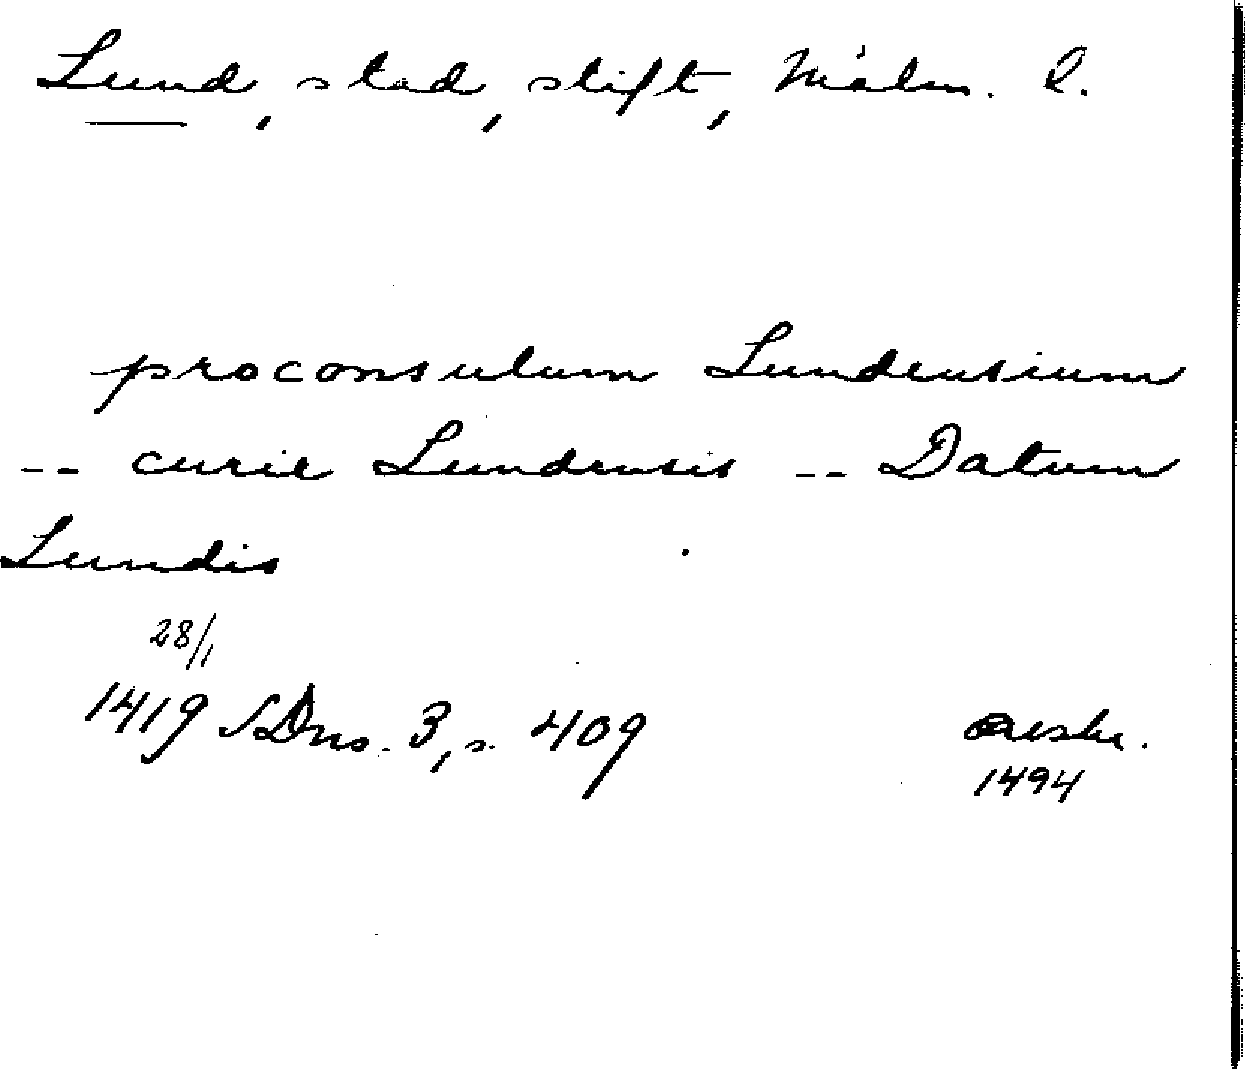 Lund, stad, stift, Malm. l.
proconsulum Lundensium
-- curie Lundensis -- Datum
Lundis
28/1
1419 SDns. 3, s. 409
1494